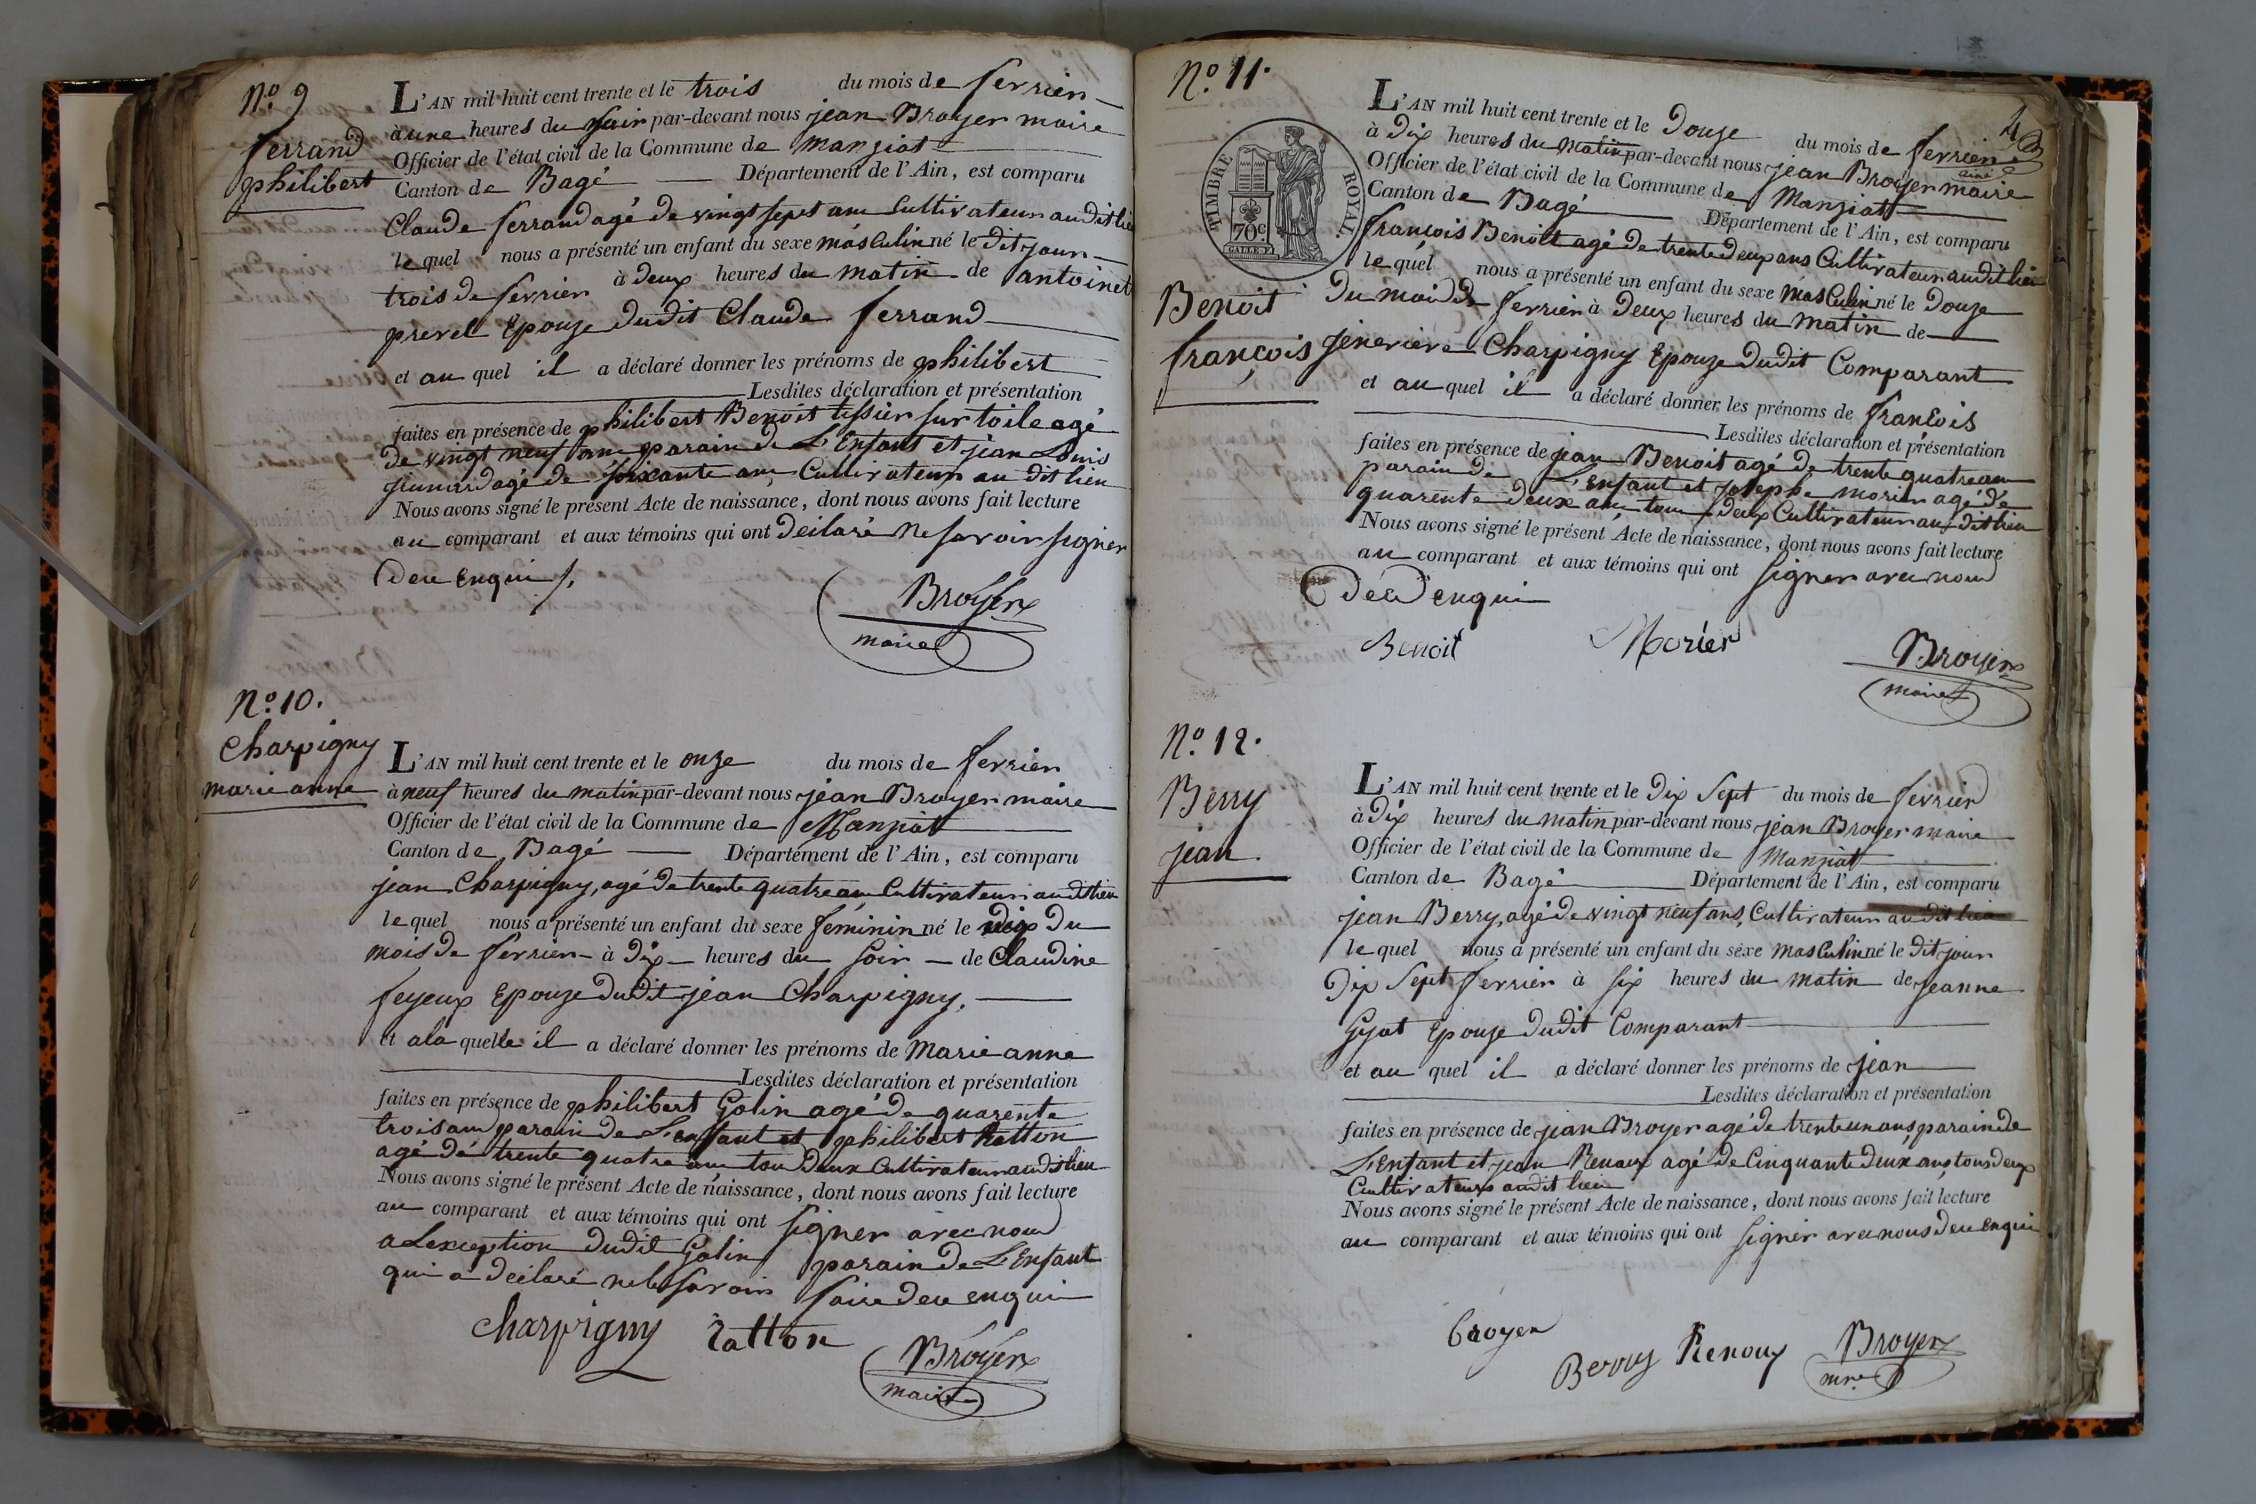 N.º 9
ferrand
philibert
L'AN mil huit cent trente et le trois du mois de fevrier
à une heures du soir par-devant nous jean Broyer maire
Officier de l'état civil de la Commune de manziat
Canton de Bagé Département de l'Ain, est comparu
Claude ferrand agé de vingt sept ans Cultivateur audit lieu
le quel nous a présenté un enfant du sexe masculin né le dit jour
trois de fevrier à deux heures du matin de antoinet
prevel Epouze dudit Claude ferrand
et au quel il a déclaré donner les prénoms de philibert
Lesdites déclaration et présentation
faites en présence de philibert Benoit tissier sur toile agé
de vingt neuf ans parain de L'Enfant et jean Louis
agé de soixante ans Cultivateur au dit lieu
Nous avons signé le présent Acte de naissance, dont nous avons fait lecture
au comparant et aux témoins qui ont déclaré ne savoir signer
de ce enquis
Broyer
maire
N.º 10.
Charpigny
marie anne
L'AN mil huit cent trente et le onze du mois de fevrier
à neuf heures du matin par-devant nous jean Broyer maire
Officier de l'état civil de la Commune de Manziat
Canton de Bagé Département de l'Ain, est comparu
jean Charpigny, agé de trente quatre ans Cultivateur audit lieu
le quel nous a présenté un enfant du sexe féminin né le dix du
mois de fevrier à dix heures du soir de Claudine
feyeux Epouze dudit jean Charpigny.
et a la quelle il a déclaré donner les prénoms de Marie anne
Lesdites déclaration et présentation
faites en présence de philibert Golin agé de quarente
trois ans parain de L'enfant et philibert Ratton
agé de trente quatre ans tou deux Cultivateur audit lieu
Nous avons signé le présent Acte de naissance, dont nous avons fait lecture
au comparant et aux témoins qui ont signer avec nous
a Lexception dudit Golin parain de L'Enfant
qui a déclaré ne le savoir faire de ce enquis
Charpigny ratton
Broyer
maire
N.º 11.
4
TIMBRE ROYAL
70c
Benoit
françois
L'AN mil huit cent trente et le Douze du mois de fevrier
à Dix heures du matin par-devant nous jean Broyer ainé maire
Officier de l'état civil de la Commune de Manziat
Canton de Bagé Département de l'Ain, est comparu
françois Benoit agé de trente deux ans Cultivateur audit lieu
le quel nous a présenté un enfant du sexe masculin né le Douze
du mois de fevrier à Deux heures du matin de
jenevieve Charpigny Epouze dudit Comparant
et au quel il a déclaré donner les prénoms de francois
Lesdites déclaration et présentation
faites en présence de jean Benoit agé de trente quatre ans
parain de L'enfant et josephe morier agé de
quarente deux ans tous deux Cultivateur au dit lieu
Nous avons signé le présent Acte de naissance, dont nous avons fait lecture
au comparant et aux témoins qui ont signer avec nous
de ce enquis
Benoit Morier
Broyer
maire
N.º 12.
Berry
jean
L'AN mil huit cent trente et le Dix Sept du mois de fevrier
à Dix heures du matin par-devant nous jean Broyer maire
Officier de l'état civil de la Commune de Manziat
Canton de Bagé Département de l'Ain, est comparu
jean Berry, agé de vingt neuf ans, Cultivateur audit lieu
le quel nous a présenté un enfant du sexe masculin né le dit jour
Dix Sept fevrier à six heures du matin de jeanne
Gyat Epouze dudit Comparant
et au quel il a déclaré donner les prénoms de jean
Lesdites déclaration et présentation
faites en présence de jean Broyer agé de trente un ans, parain de
L'Enfant et jean Renoux agé de Cinquante deux ans tous deux
Cultivateurs audit lieu
Nous avons signé le présent Acte de naissance, dont nous avons fait lecture
au comparant et aux témoins qui ont signer avec nous de ce enquis
broyer
Berry Renoux Broyer
mre